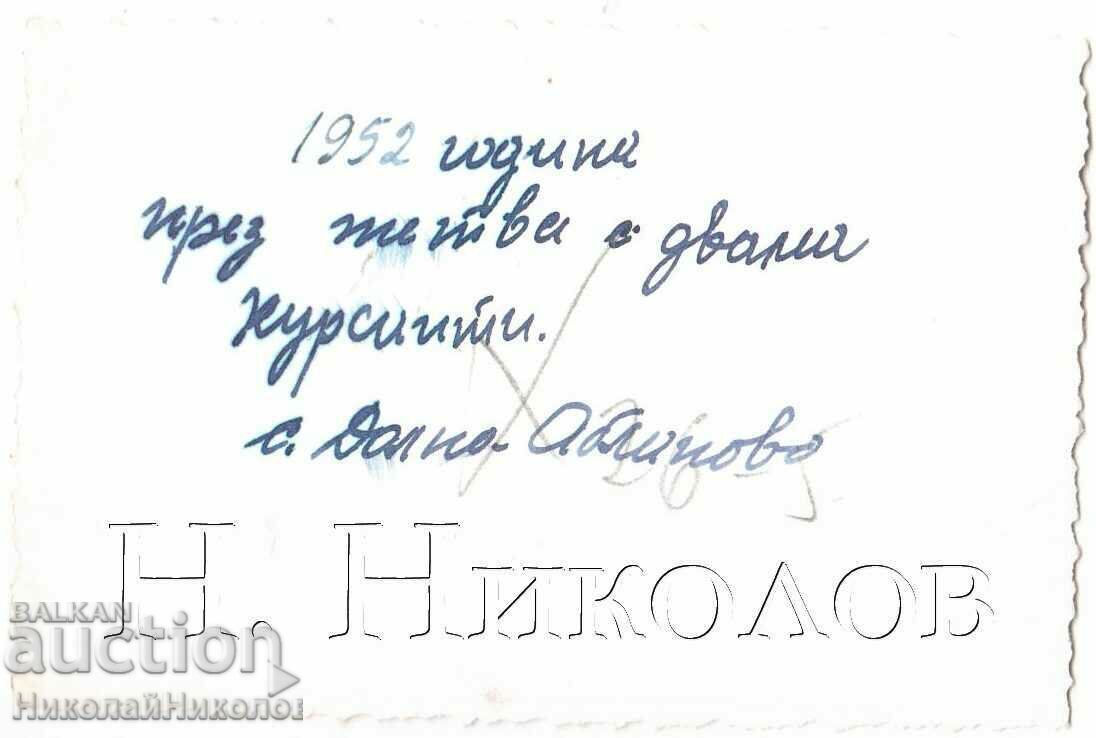 1952 година
през жетва с двама
Курсанти.
с. Долна Абланово
Н. Николов
BALKAN
auction
НиколайНиколов